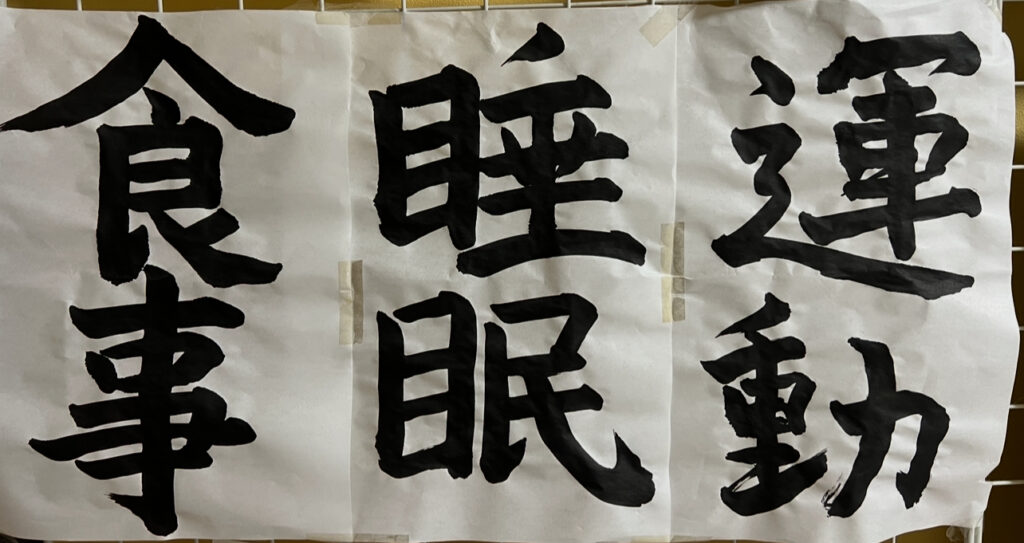 運動
睡眠
食事